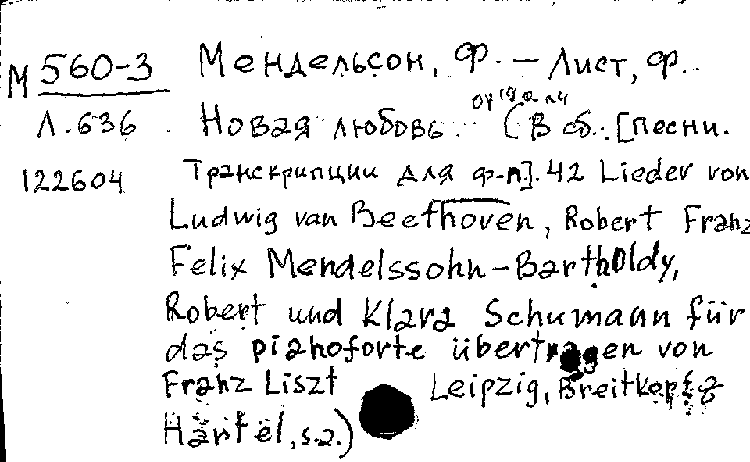 М 560-3 Мендельсон, Ф. — Лист, Ф.
Л.636 Новая любовь. (В сб.: [Песни.
122604 Транскрипции для ф-п]. 42 Lieder von
Ludwig van Beethoven, Robert Franz
Felix Mendelssohn-Bartholdy,
Robert und Klara Schumann für
das pianoforte übertragen von
Franz Liszt Leipzig, Breitkopf &
Härtel, s.a.)